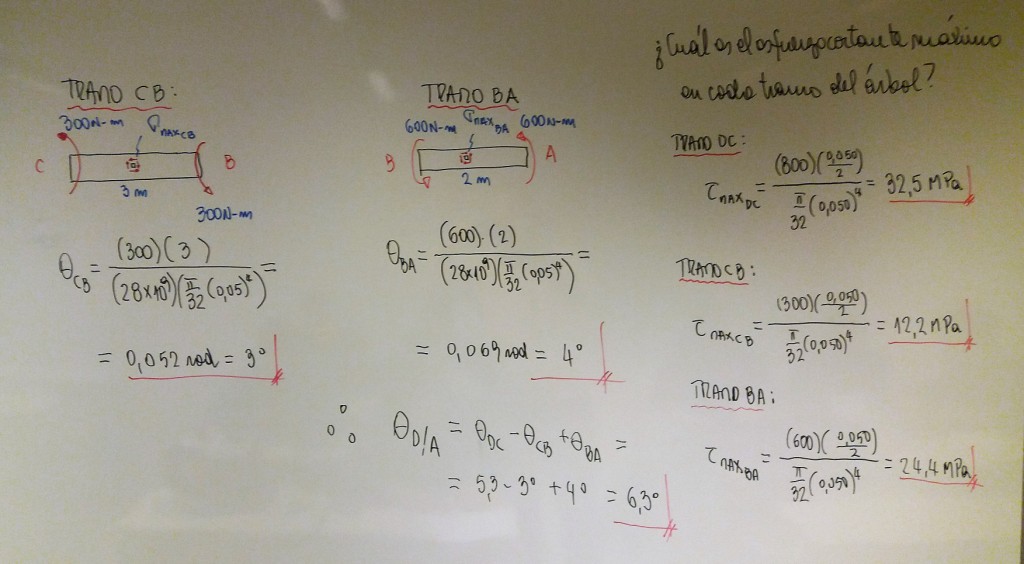 TRAMO CB:
300N-m σMAXCB
C B
3 m
300N-m
θCB = (300)(3) / (28x10⁹)(π/32 (0,05)⁴) =
= 0,052 rad = 3°
TRAMO BA
600N-m σMAXBA 600N-m
B A
2 m
θBA = (600)·(2) / (28x10⁹)(π/32 (0,05)⁴) =
= 0,069 rad = 4°
∴ θD/A = θDC - θCB + θBA =
= 5,3 - 3° + 4° = 6,3°
¿Cuál es el esfuerzo cortante máximo
en cada tramo del árbol?
TRAMO DC:
τMAXDC = (800)(0,050/2) / π/32 (0,050)⁴ = 32,5 MPa
TRAMO CB:
τMAXCB = (300)(0,050/2) / π/32 (0,050)⁴ = 12,2 MPa
TRAMO BA:
τMAXBA = (600)(0,050/2) / π/32 (0,050)⁴ = 24,4 MPa